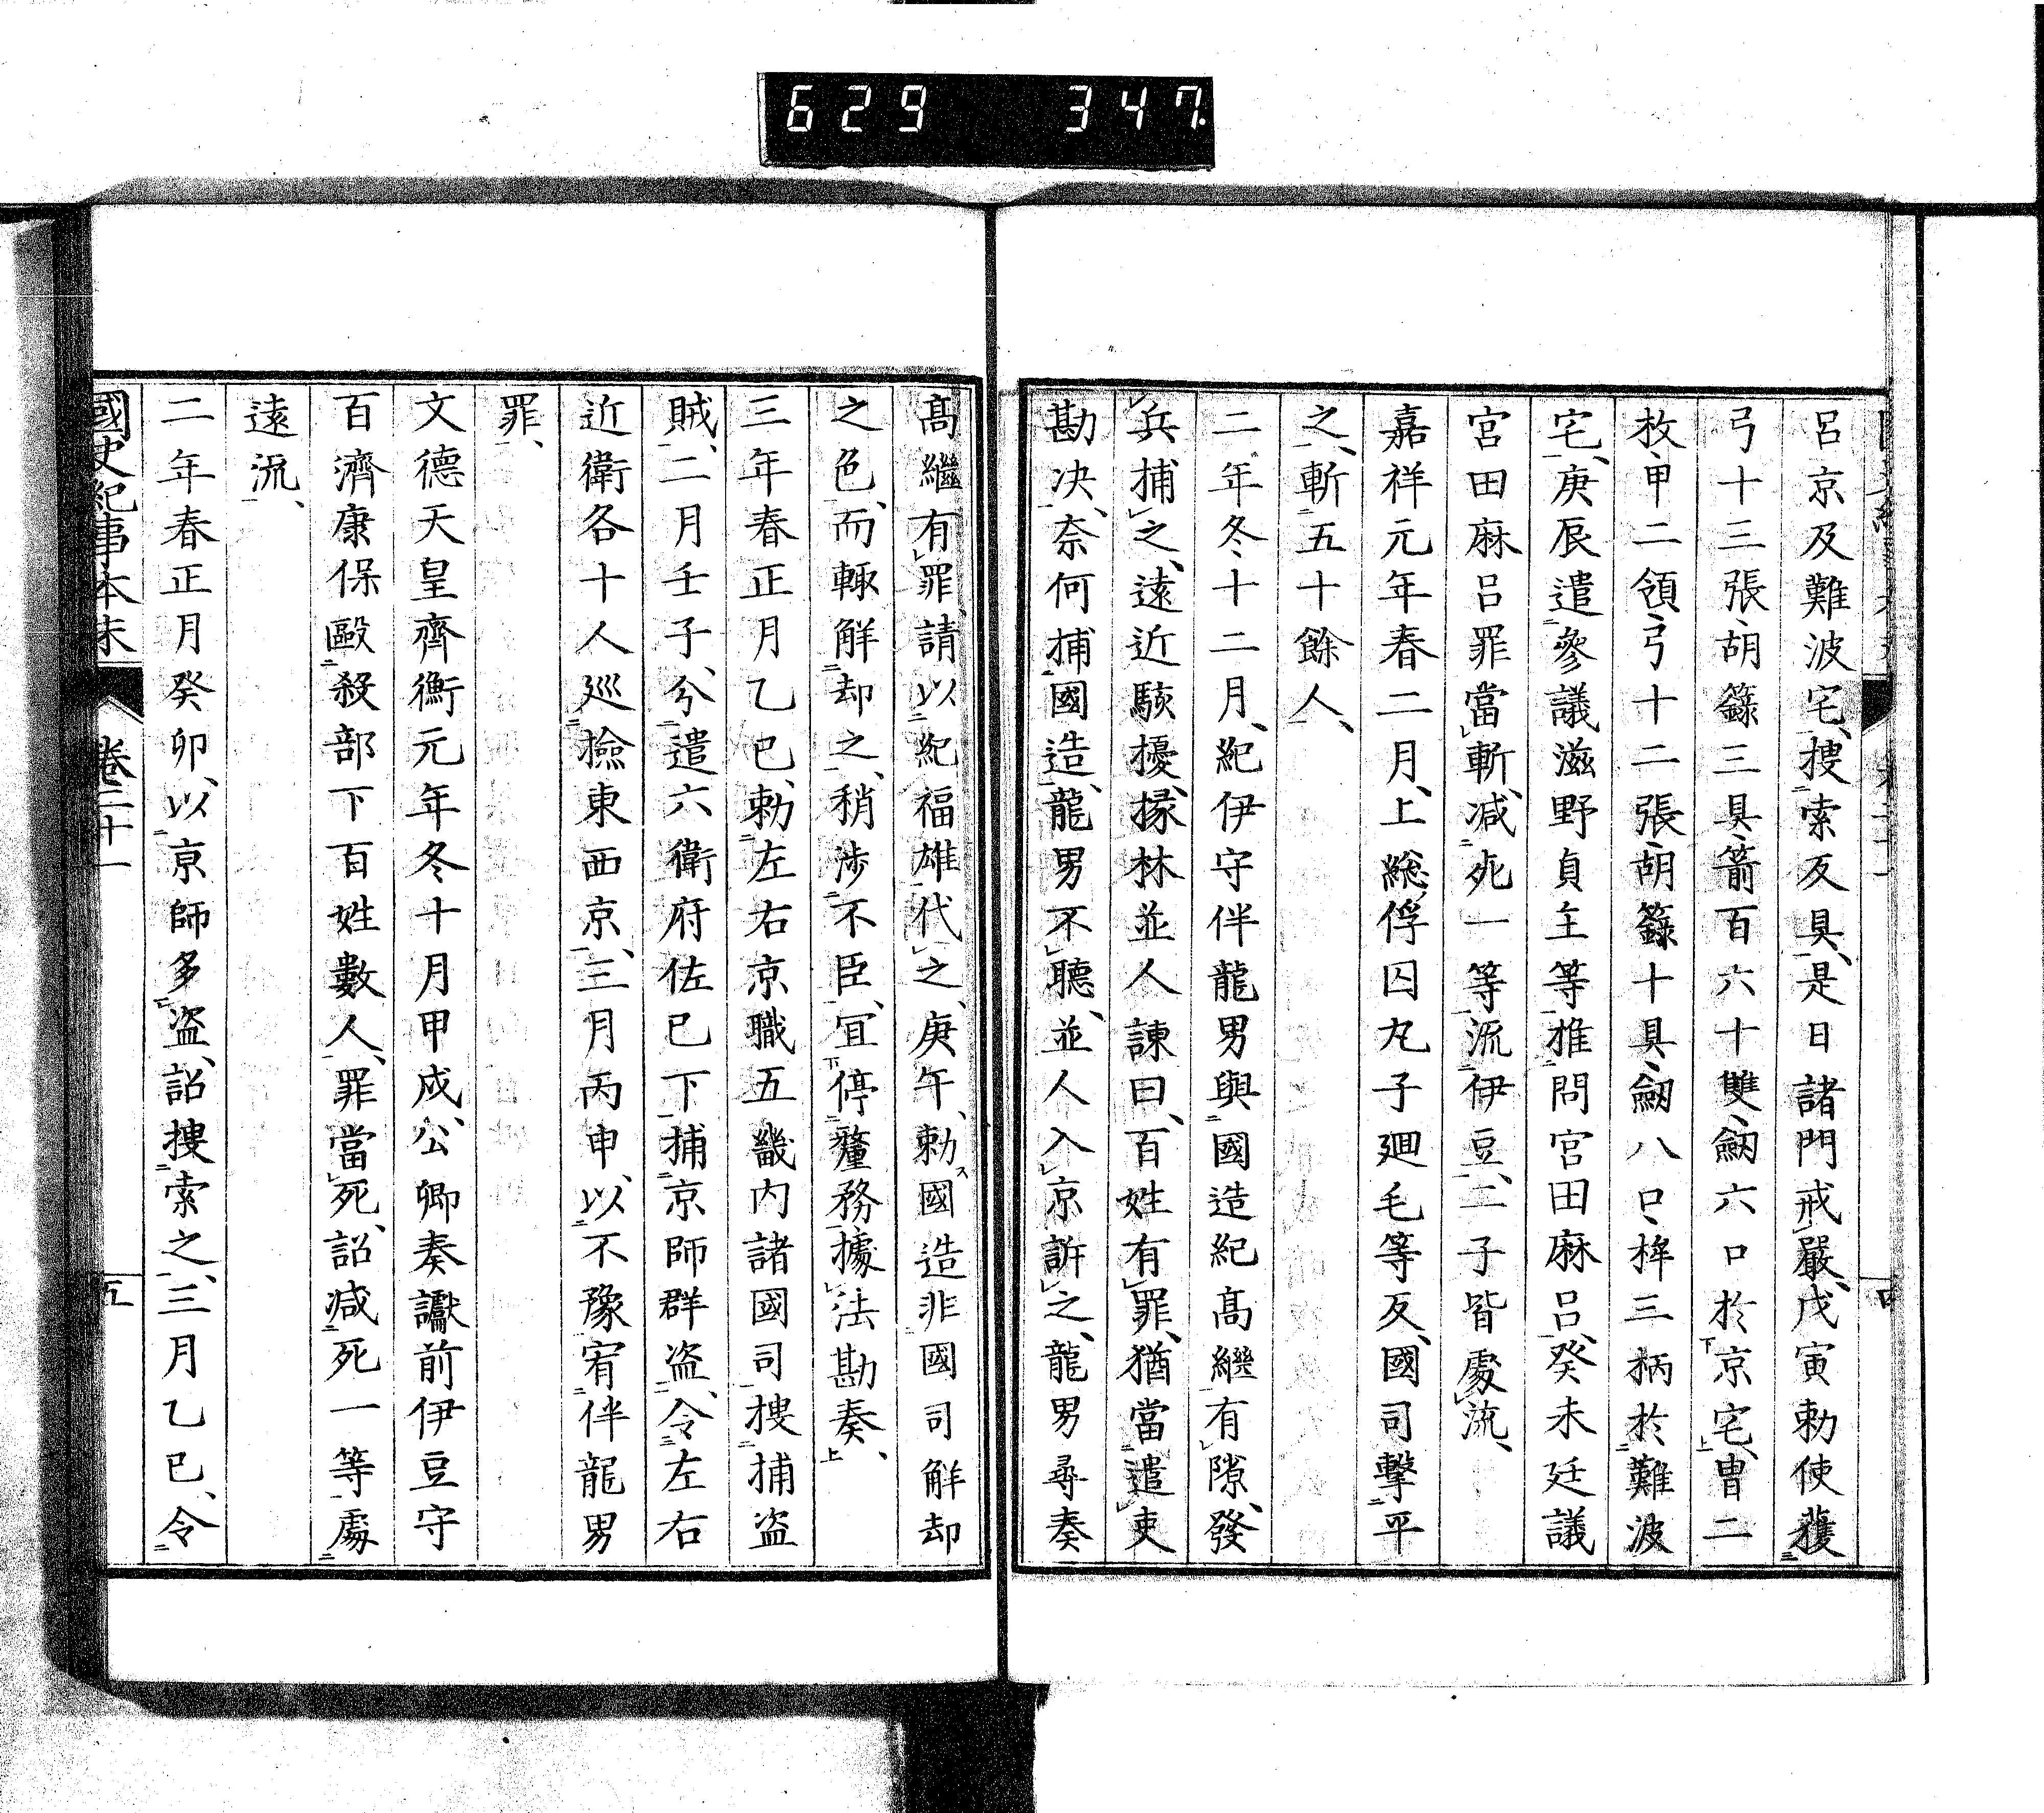 629 347
呂京及難波宅、搜索反具、是日諸門戒嚴、戊寅勅使獲
弓十三張、胡籙三具、箭百六十雙、劒六口於京宅、冑二
枚、甲二領、弓十二張、胡籙十具、劒八口、桙三柄於難波
宅、庚辰遣參議滋野貞主等推問宮田麻呂、癸未廷議
宮田麻呂罪當斬、减死一等流伊豆、二子皆處流、
嘉祥元年春二月、上總俘囚丸子廻毛等反、國司擊平
之、斬五十餘人、
二年冬十二月、紀伊守伴龍男與國造紀髙繼有隙、發
兵捕之、遠近駭擾、掾林並人諫曰、百姓有罪、猶當遣吏
勘决、奈何捕國造、龍男不聽、並人入京訴之、龍男尋奏
髙繼有罪、請以紀福雄代之、庚午、勅國造非國司解却
之色、而輙解却之、稍涉不臣、宜停釐務據法勘奏、
三年春正月乙巳、勅左右京職五畿内諸國司搜捕盜
賊、二月壬子、分遣六衛府佐已下捕京師群盜、令左右
近衛各十人廵撿東西京、三月丙申、以不豫宥伴龍男
罪、
文德天皇齊衡元年冬十月甲戌、公卿奏讞前伊豆守
百濟康保毆殺部下百姓數人、罪當死、詔减死一等處
遠流、
二年春正月癸卯、以京師多盜、詔搜索之、三月乙巳、令
國史紀事本末 卷二十一 五